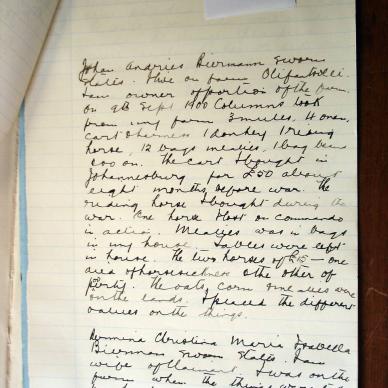 Johan Andries Biermann Sworn
States. I live on farm Olifantsvlei.
I am owner of portion of the farm.
on 9th Sept 1900 Columns took
from my farm 3 mules, 4 oxen,
cart & harness 1 donkey 1 riding
horse, 12 bags mealies, 1 bag
on. The cart I bought in
Johannesburg for £50 about
eight months before war. The
riding horse I bought during the
war. One horse I lost on commando
in action. Mealies was in bags
in my house. Tables were left
in house. The two horses of £15 — one
died of horsesickness & the other of
. The oats, corn mealies were
on the lands. I placed the different
values on the things.
Hermina Christina Maria Isabella
Bierman Sworn States. I am
wife of Claimant. I was on the
farm when the things were